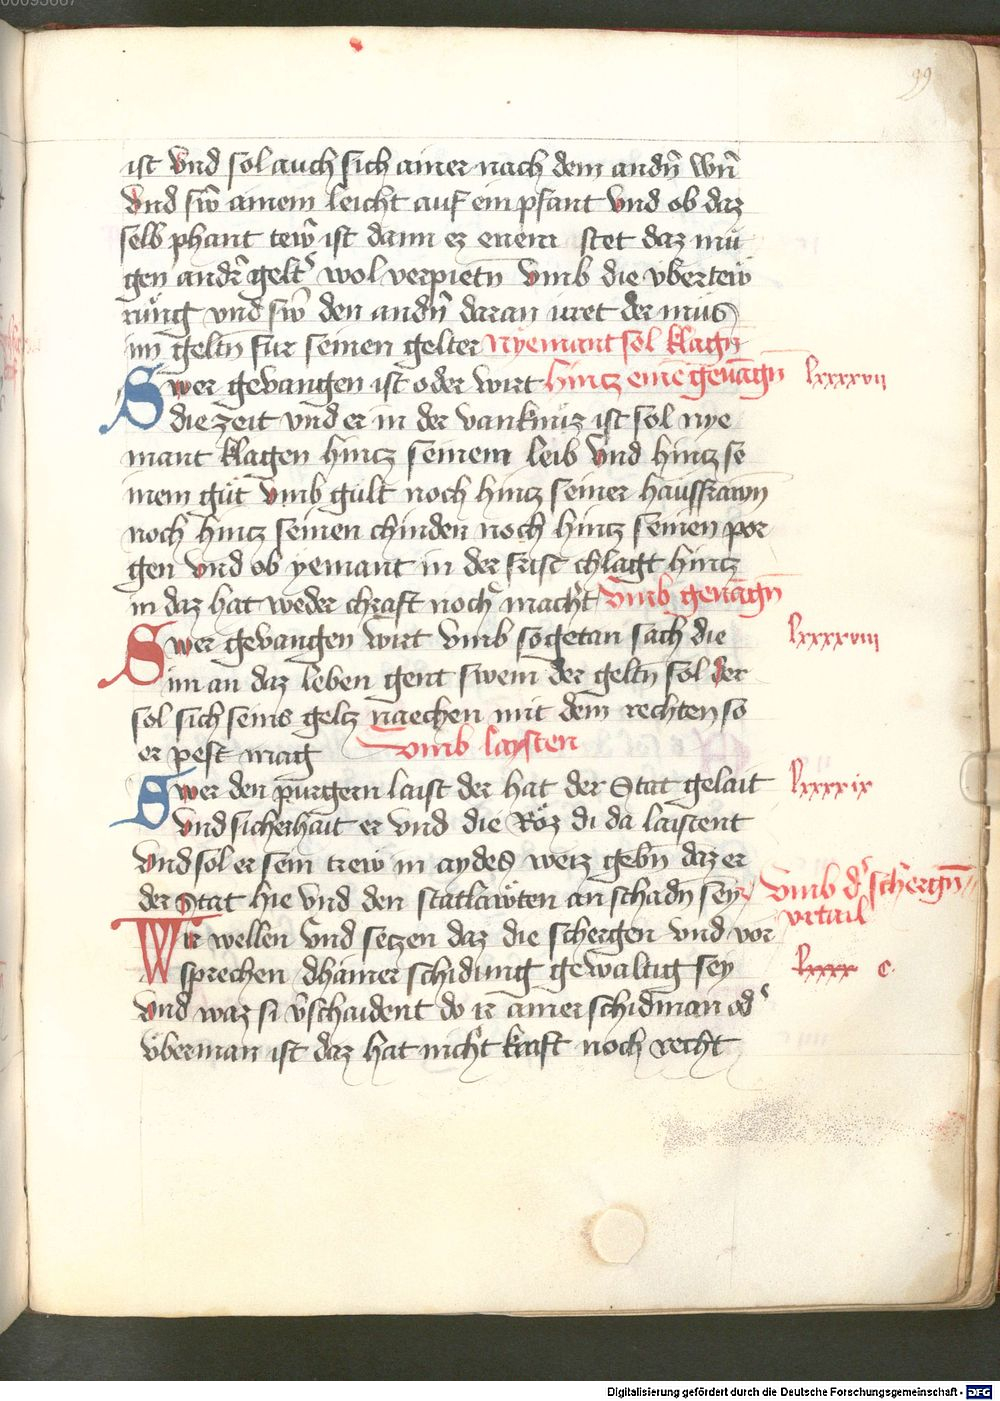 99
ist vnd sol auch sich ainer nach dem andn̄ wn̄
vnd sw̄ ainem leicht auf ein pfant vnd ob daz
selb phant tew̄ ist dann ez enem stet daz mu
gen andr̄ gelt͛ wol verpietn̄ vmb die vbertew
rūng vnd sw̄ den andn̄ daran irret der müs
im geltn̄ fur seinen gelter Nyemant sol klagn̄
Swer gevangen ist oder wirt hincz eine gevāgn̄ lxxxxvii
die zeit vnd er in der vanknüz ist sol nye
mant klagen hincz seinem leib vnd hincz se
inem güt vmb gült noch hincz seiner haussfrawn̄
noch hincz seinen chinden noch hincz seinen por
gen vnd ob yemant in der frist chlagt hincz
in daz hat weder chraft noch macht vmb gevāgn̄
Swer gevangen wirt vmb sogetan sach die lxxxxviii
im an daz leben gent swem der geltn̄ sol der
sol sich seins geltz naechen mit dem rechten so
er pest mag vmb laysten
Swer den purgern laist der hat der Stat gelait lxxxxix
vnd sicherhait er vnd die Röz di da laistent
vnd sol er sein trew in aydes weiz gebn̄ daz er
der Stat hie vnd den statläwten an schadn̄ sey vmb d͛ schergn̄
vrtail
Wir wellen vnd seczen daz die schergen vnd vor
sprechen dhainer schidung gewaltig sey lxxxx c
vnd waz si v̄schaident do ir ainer schidman od͛
vberman ist daz hat nicht kraft noch recht
Digitalisierung gefördert durch die Deutsche Forschungsgemeinschaft - DFG